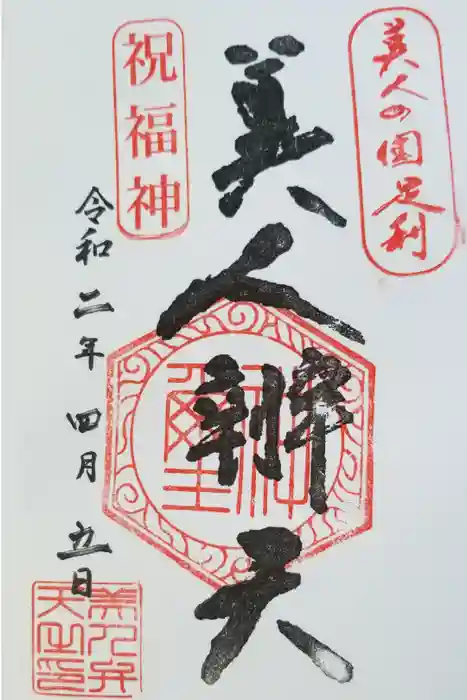 美人の国足利
美人辨天
祝福神
令和二年四月五日
美人弁
天之印